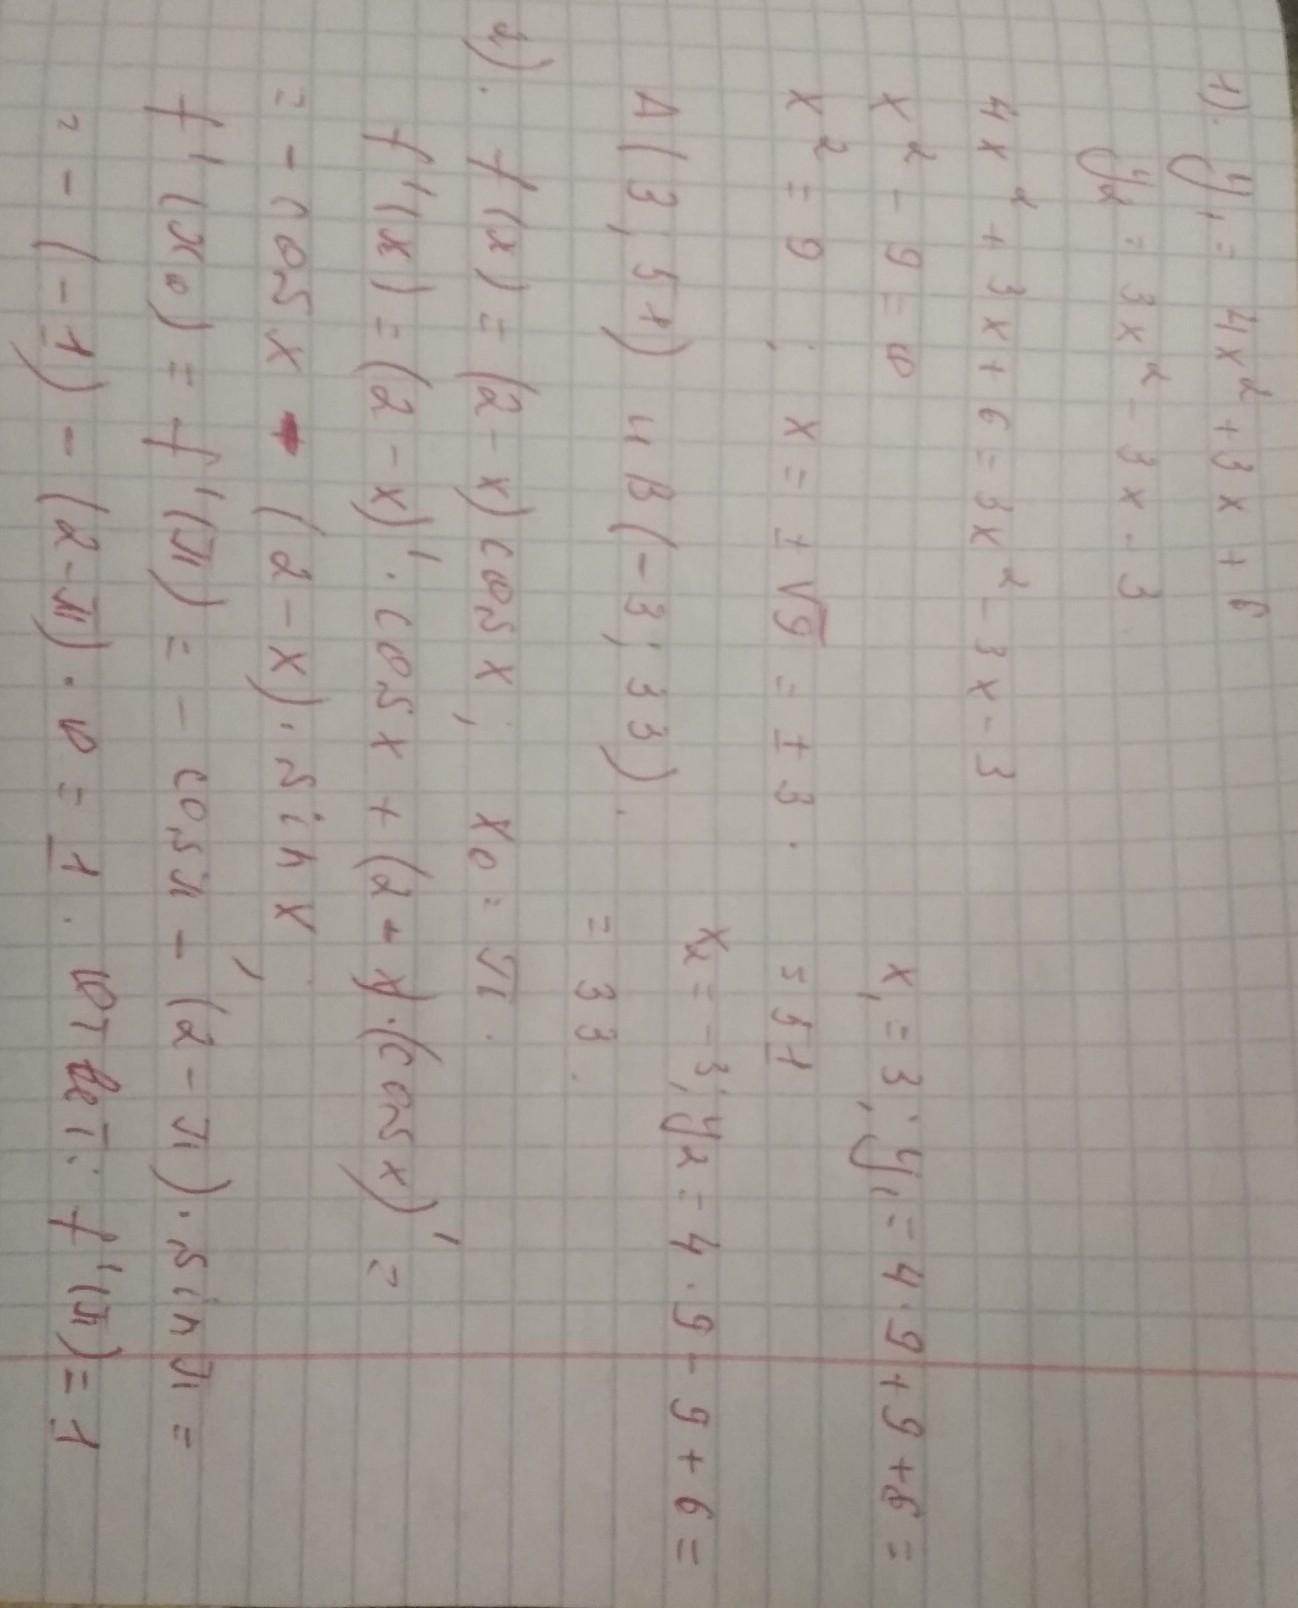 1). y₁ = 4x² + 3x + 6
y₂ = 3x² - 3x - 3
4x² + 3x + 6 = 3x² - 3x - 3
x² - 9 = 0
x² = 9 ; x = ± √9 = ± 3.
x₁ = 3; y₁ = 4 · 9 + 9 + 6 =
= 51
x₂ = -3; y₂ = 4 · 9 - 9 + 6 =
= 33.
A(3; 51) и B(-3; 33).
2). f(x) = (2-x) cos x; x₀ = π.
f'(x) = (2-x)' · cos x + (2-x) · (cos x)' =
= - cos x - (2-x) · sin x
f'(x₀) = f'(π) = - cos π - (2-π) · sin π =
= -(-1) - (2-π) · 0 = 1. Ответ: f'(π) = 1